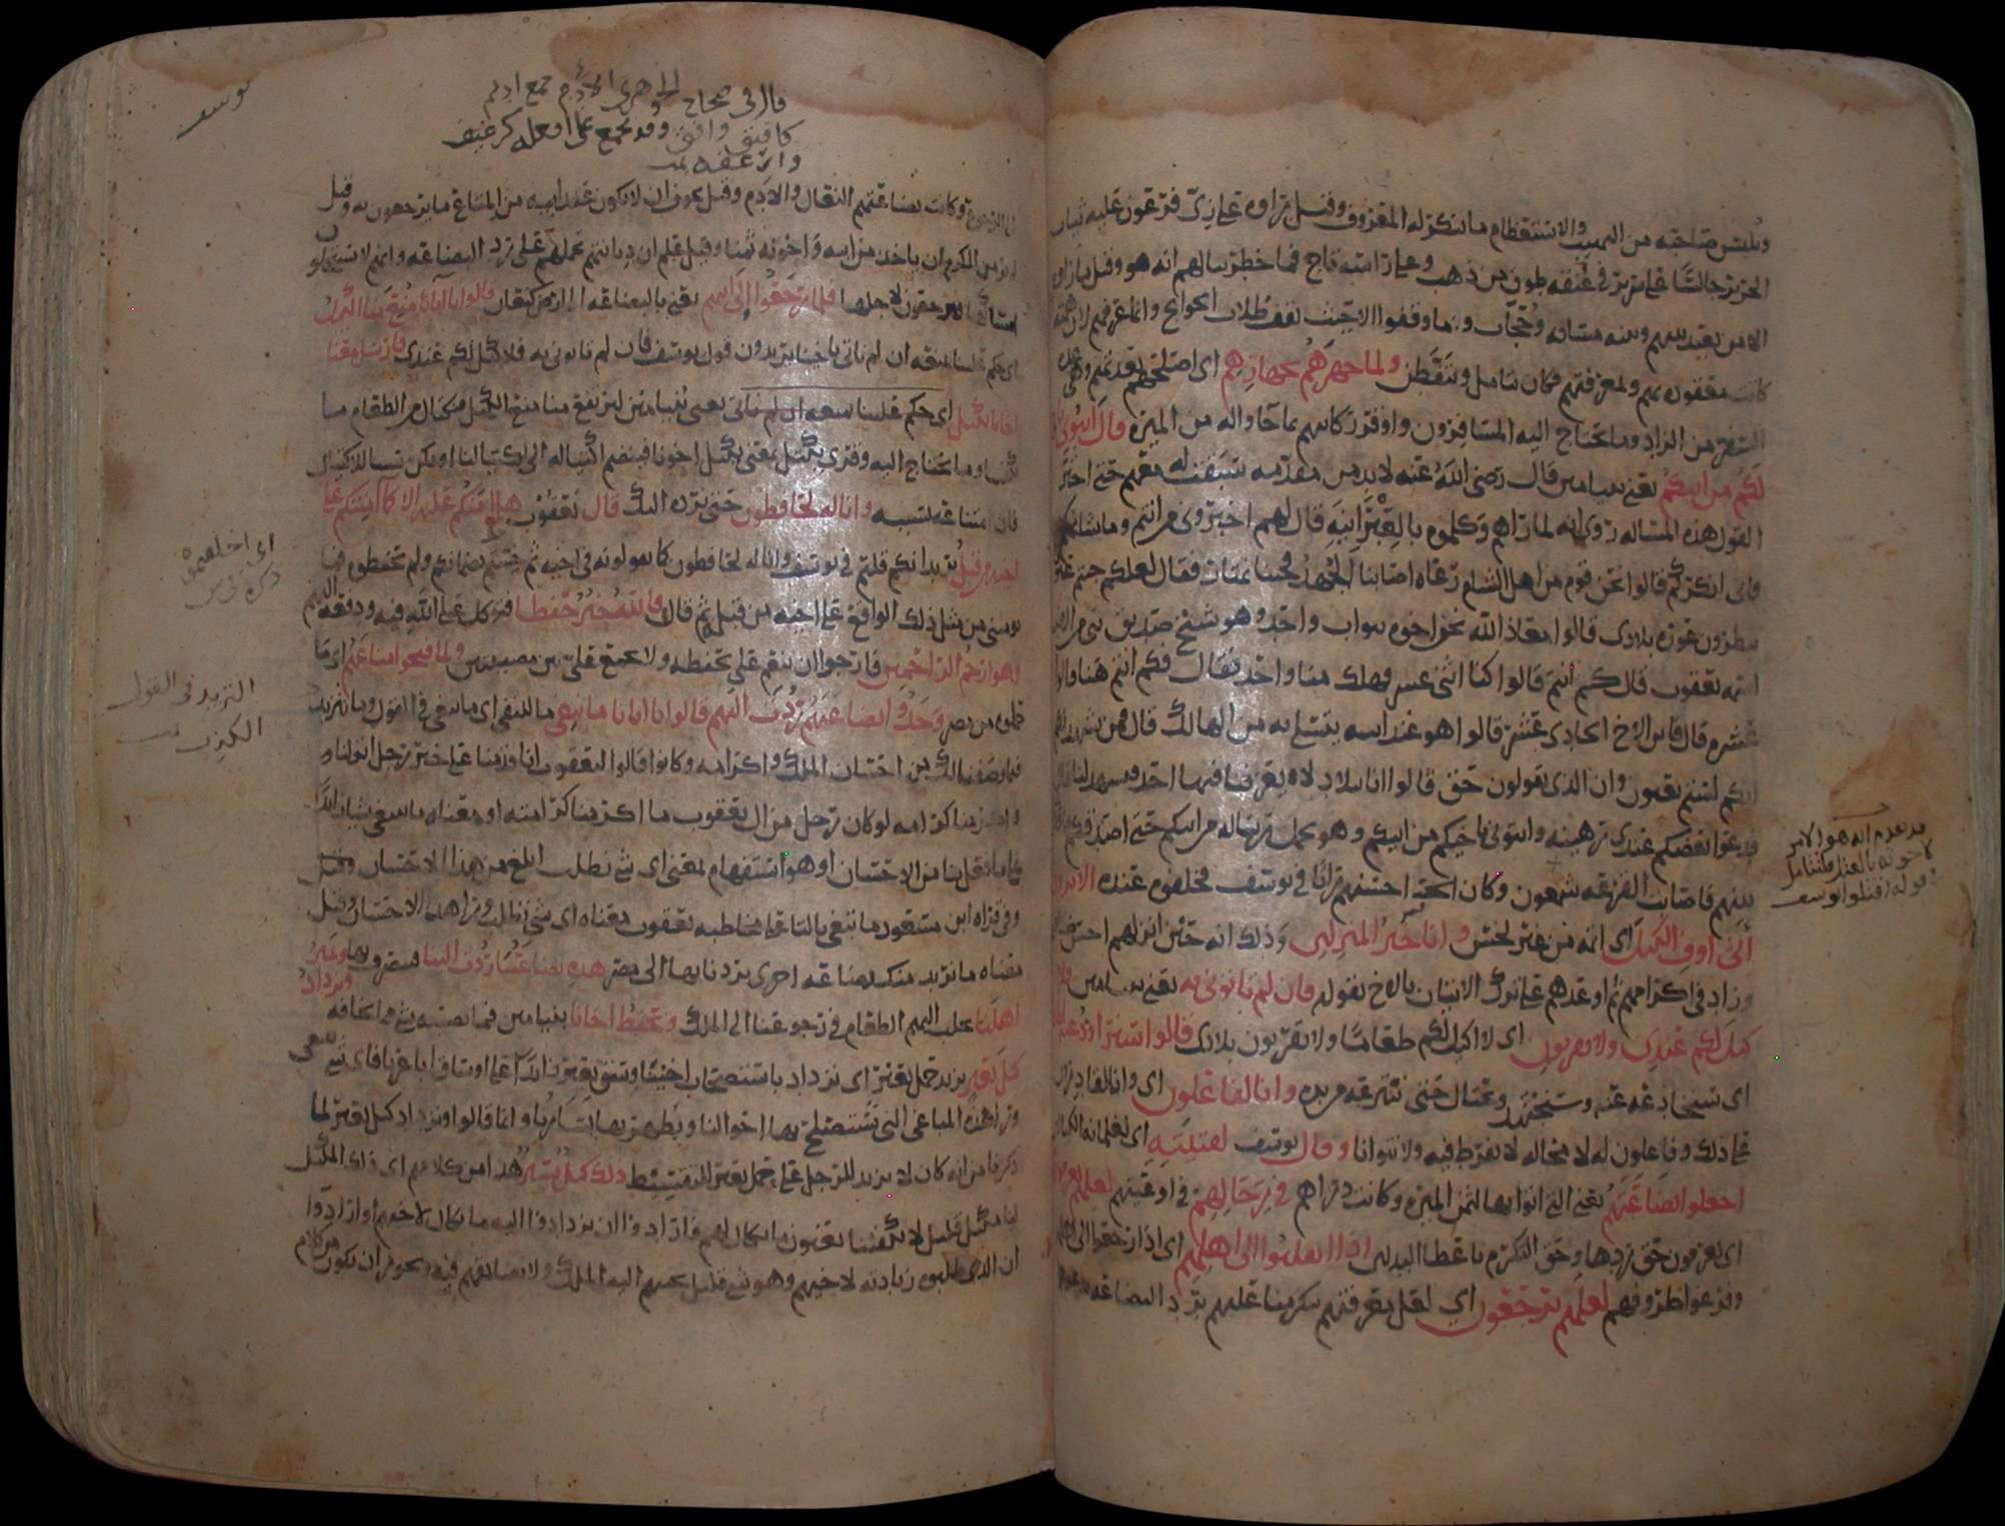 ويلبس صاحبه من التهيب والاستعظام ما ينكر له المعروف وقيل رأوه على زي فرعون عليه ثياب
الحرير جالسًا على سرير في عنقه طوق من ذهب وعلى رأسه تاج فما خطر ببالهم انه هو وقيل ما رأوه
الا من بعيد بينهم وبينه مسافه وحجاب وما وقفوا الا حيث يقف طلاب الحوايج وانما عرفهم لان همته
كانت معقوده بهم وبمعرفتهم فكان يتامل ويتفطن ولما جهزهم بجهازهم اي اصلحهم بعدتهم وهي عدة
السفر من الزاد وما يحتاج اليه المسافرون واوقر ركائبهم بما جاءوا له من الميرة قال ائتوني باخ
لكم من ابيكم يعني بنيامين قال رضي الله عنه لا بد من مقدمه سبقت له معهم حتى اجتر
القول هذه المساله روي انه لما رآهم وكلموه بالعبرانيه قال لهم اخبروني من انتم وما شانكم
فاني انكركم قالوا نحن قوم من اهل الشام رعاه اصابنا الجهد فجئنا نمتار فقال لعلكم جئتم عيونا
تنظرون عورة بلادي قالوا معاذ الله نحن اخوه بنو اب واحد وهو شيخ صديق نبي من الانبيا
اسمه يعقوب قال كم انتم قالوا كنا اثني عشر فهلك منا واحد فقال فكم انتم هنا قالوا
عشره قال فاين الاخ الحادي عشر قالوا هو عند ابيه يتسلى به من الهالك قال فمن يشهد لكم
انكم لستم بعيون وان الذي تقولون حق قالوا انا ببلاد لا يعرفنا فيها احد فيشهد لنا قال
فدعوا بعضكم عندي رهينه وائتوني باخيكم من ابيكم وهو يحمل رساله من ابيكم حتى اصدقكم فاقترعوا
بينهم فاصابت القرعه شمعون وكان احسنهم رايًا في يوسف فخلفوه عنده الا ترون
اني اوفي الكيل اي اتمه من غير بخس وانا خير المنزلين وذلك انه حين انزلهم احسن ضيافتهم
وزاد في اكرامهم ثم اوعدهم على ترك الاتيان بالاخ بقوله فان لم تاتوني به يعني بنيامين فلا
كيل لكم عندي ولا تقربون اي لا اكيل لكم طعامًا ولا تقربون بلادي قالوا سنراود عنه اباه
اي سنخادعه عنه وسنجتهد ونحتال حتى ننتزعه من يده وانا لفاعلون اي وانا لقادرون
على ذلك وفاعلون له لا محاله لا نفرط فيه ولا نتوانا وقال يوسف لفتيته اي لغلمانه الكيالين
اجعلوا بضاعتهم يعني التي اتوا بها لثمن الميرة وكانت دراهم في رحالهم في اوعيتهم لعلهم يعرفونها
اي يعرفون حق ردها وحق التكرم باعطا البدلين اذا انقلبوا الى اهلهم اي اذا رجعوا الى اهلهم
وفرغوا ظروفهم لعلهم يرجعون اي لعل معرفتهم بكرمنا عليهم برد البضاعه تدعوهم
قد تقدم انه هو الامر
لاخوته بالقتل فليتامل
قوله اقتلوا يوسف
يوسف
قال في صحاح الجوهري الأدم جمع اديم
كافيق وافق وقد يجمع على افعله كرغيف
وارغفه تمت
الى الرجوع وكانت بضاعتهم النعال والادم وقيل يخوف ان لا يكون عند ابيه من المتاع ما يرجعون به وقيل
لم ير من الكرم ان ياخذ من ابيه واخوته ثمنا وقيل علم ان ديانتهم تحملهم على رد البضاعه وانهم لا يستحلون
امساكها فيرجعون لاجلها فلما رجعوا الى ابيهم يعني بالبضاعه الى ارض كنعان قالوا يا ابانا منع منا الكيل
اي حكم علينا بمنعه ان لم ناتي باخينا يريدون قول يوسف فان لم تاتوني به فلا كيل لكم عندي فارسل معنا
اخانا نكتل اي حكم علينا بمنعه ان لم ناتي يعني بنيامين لنرفع منا منع الكيل فنكتال من الطعام ما
كفينا وما نحتاج اليه وقري يكتل بمعنى يكتل اخونا فينضم اكتياله الى اكتيالنا او يكن سببا للاكتيال
فان امتناعه بسببه وانا له لحافظون حتى نرده اليك قال يعقوب هل امنكم عليه الا كما امنتكم على
اخيه من قبل يريد انكم قلتم في يوسف وانا له لحافظون كما تقولونه في اخيه ثم خنتم بضمانكم ولم تحفظوه فما
يومني من مثل ذلك الواقع على اخيه من قبل ثم قال فالله خير حفظا فتوكل على الله فيه ودفعه اليهم
وهو ارحم الراحمين فارجوا ان ينعم علي بحفظه ولا يجمع علي بين مصيبتين ولما فتحوا متاعهم اي ما
حملوه من مصر وجدوا بضاعتهم ردت اليهم قالوا يا ابانا ما نبغي ما للنفي اي ما نبغي في القول وما نتزيد
فيما وصفنا لك من احسان الملك واكرامه وكانوا قالوا ليعقوب انا قدمنا على خير رجل انزلنا
واكرمنا كرامه لو كان رجل من ال يعقوب ما اكرمنا كرامته او معناه ما نبغي شيا زايدًا
على ما فعل بنا من الاحسان او هو استفهام بمعنى اي شي نطلب ابلغ من هذا الاحسان وقيل
وفي قراه ابن مسعود ما تبغي بالتا على مخاطبه يعقوب معناه اي شي تطلب ورا هذا الاحسان وقيل
معناه ما نريد منك بضاعه اخرى نرد بها الى مصر هذه بضاعتنا ردت الينا فنستظهر بها ونمير
اهلنا نجلب اليهم الطعام في رجوعنا الى الملك ونحفظ اخانا بنيامين فما يصيبه شي مما تخافه ونزداد
كيل بعير نريد حمل بعير اي نزداد باستصحاب اخينا وسق بعير زائدًا على اوساق اباعرنا فاي شي نبغي
ورا هذه المباغي التي نستصلح بها احوالنا ونظهر بها يسارنا وانما قالوا ونزداد كيل بعير لما
ذكرنا من انه كان لا يزيد للرجل على حمل بعير للتقسيط ذلك كيل يسير هذا من كلامهم اي ذلك الكيل
لنا كيل قليل لا يكفينا يعنون ما يكال لهم فارادوا ان يزدادوا اليه ما يكال لاخيهم او ارادوا
ان الذي طلبوه زيادته لاخيهم وهو شي قليل يجيبهم اليه الملك ولا يضايقهم فيه ويجوز ان يكون من كلام
اي احلهمن
ذكره
التزيد في القول
الكذب تمت